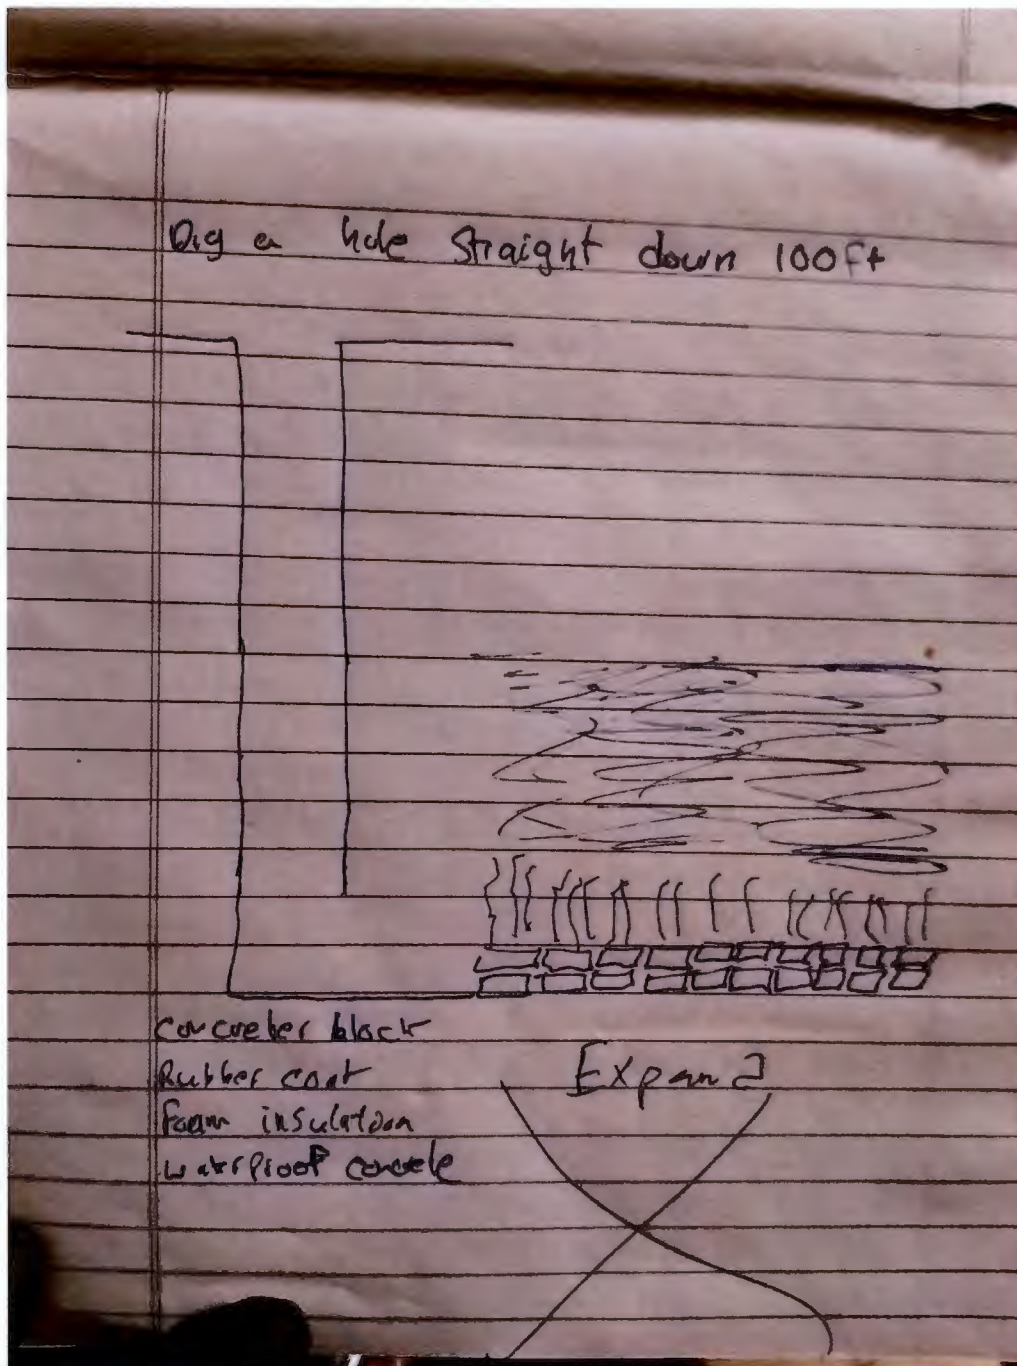 Dig a hole straight down 100ft
concreter block
Rubber coat
foam insulation
waterproof concete
Expand